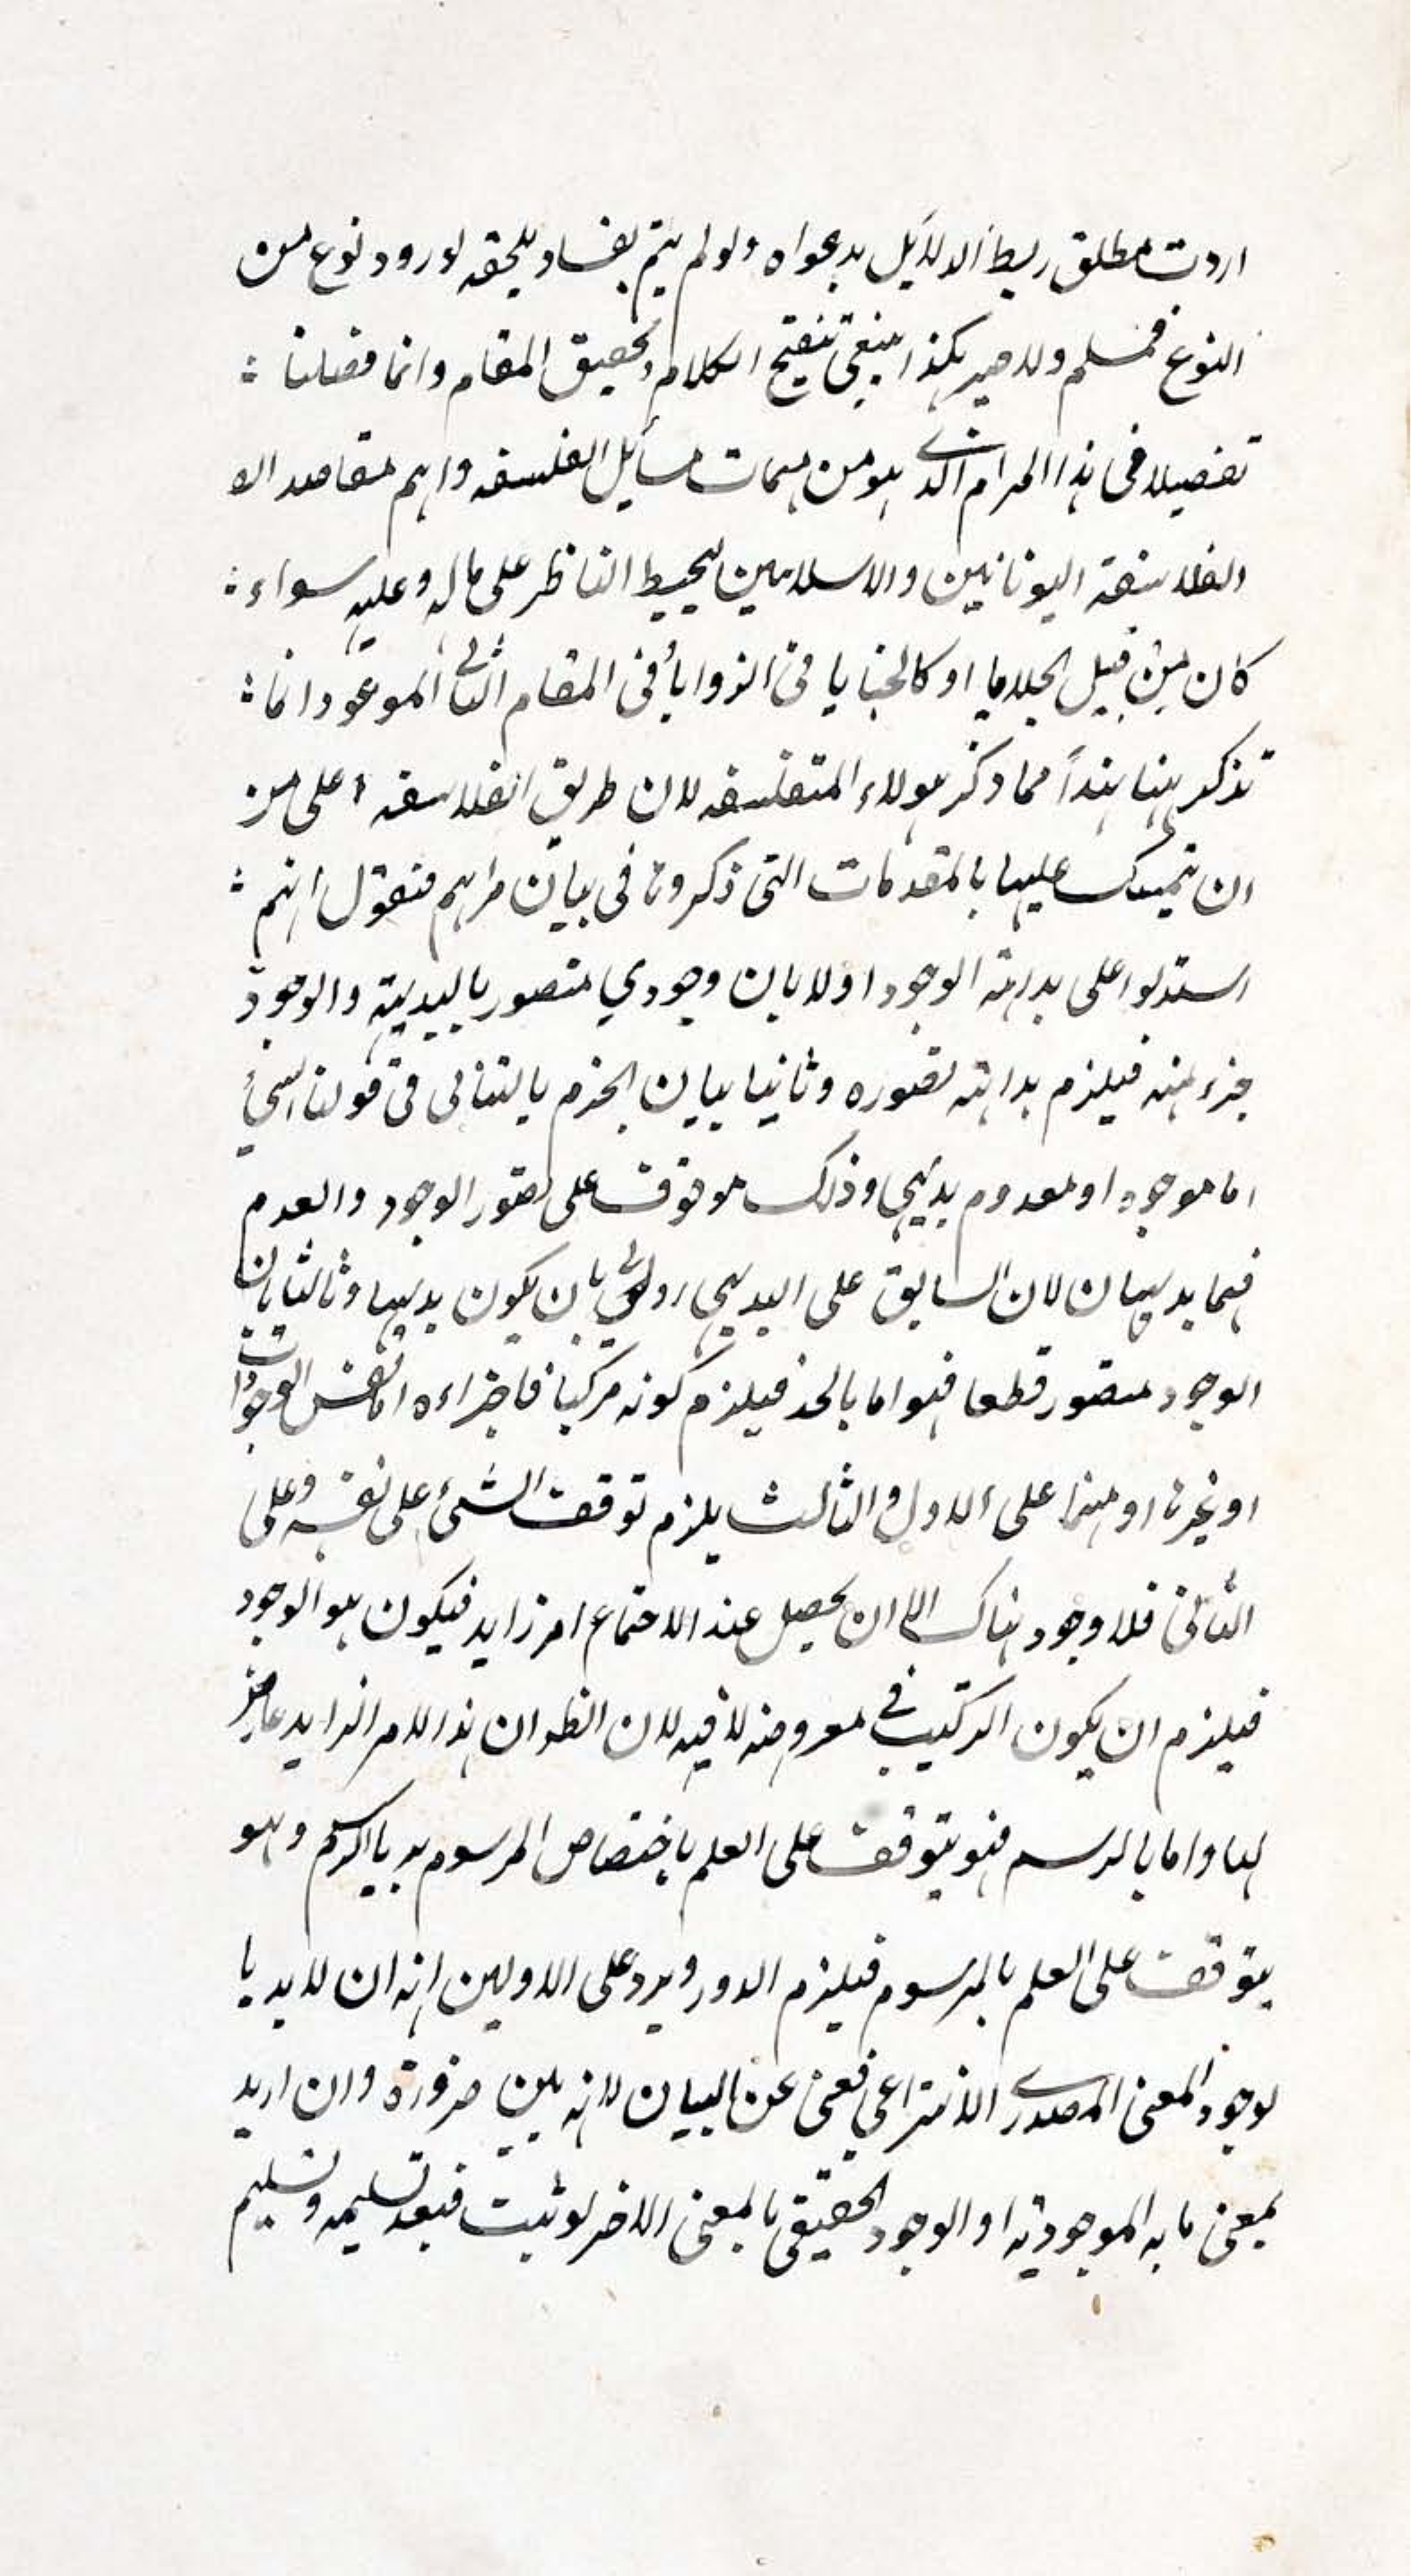 اردت مطلق ربط الدلايل بدعواه ولو لم يتم بفساد يلحقه لورود نوع من
النوع فمسلم ولا ضير هكذا ينبغى تنقيح الكلام وتحقيق المقام وانما فصلنا
تفصيلا فى هذا المرام الذي هو من مهمات مسايل الفلسفه واهم مقاصد الا
والفلاسفة اليونانيين والاسلاميين ليحيط الناظر على ماله وعليه سواء
كان من قبيل الجلايا او كالخبايا فى الزوايا فى المقام الثانى الموعود انما
نذكر هنا نبذاً مما ذكر هولاء المتفلسفه لان طريق الفلاسفه اعلى من
ان يتمسك عليها بالمقدمات التى ذكروها فى بيان مرامهم فنقول انهم
استدلوا على بداهة الوجود اولا بان وجودي متصور بالبديهية والوجود
جزء منه فيلزم بداهة تصوره وثانيا ببيان الجزم بالتنافى فى قولنا الشئ
اما موجود او معدوم بديهي وذلك موقوف على تصور الوجود والعدم
فهما بديهيان لان السابق على البديهي اولى بان يكون بديهيا وثالثا بان
الوجود متصور قطعا فهو اما بالحد فيلزم كونه مركبا فاجزاءه اما نفس الوجودات
او غيرها او منهما على الاول والثالث يلزم توقف الشئ على نفسه وعلى
الثانى فلا وجود هناك الا ان يحصل عند الاجتماع امر زايد فيكون هو الوجود
فيلزم ان يكون التركيب في معروضه لا فيه لان الظ ان هذا الامر الزايد عارض
لها واما بالرسم فهو يتوقف على العلم باختصاص المرسوم به بالرسم وهو
يتوقف على العلم بالمرسوم فيلزم الدور ويرد على الاولين انه ان اريد با
لوجود المعنى المصدري الانتزاعي فغنى عن البيان لانه بين ضرورة وان اريد
بمعنى ما به الموجودية او الوجود الحقيقى بالمعنى الاخر لو ثبت فبعد تسليمه وتسليم